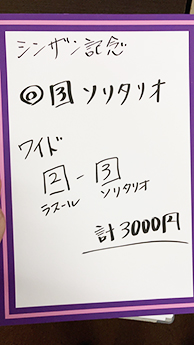 シンザン記念
◎ 3 ソリタリオ
ワイド
2 - 3
ラスール ソリタリオ
計3000円